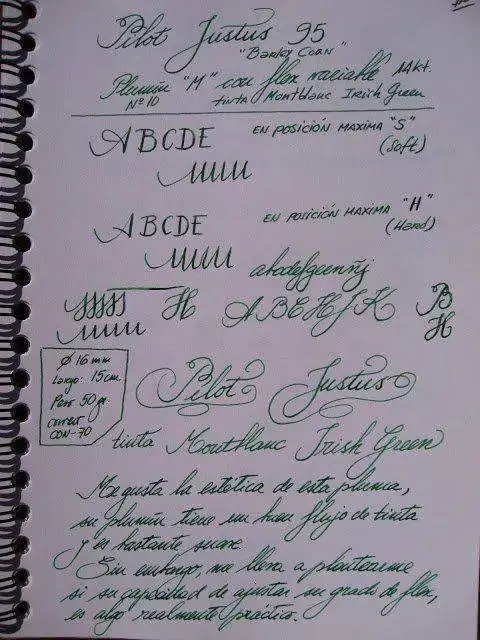 Pilot Justus 95
"Barley Corn"
Plumín "M" con flex variable 14Kt.
Nº 10 tinta Montblanc Irish Green
ABCDE EN POSICIÓN MAXIMA "S"
(Soft)
ABCDE EN POSICIÓN MAXIMA "H"
(Hard)
H A B E H J K B
H
Ø 16 mm
Largo: 15cm
Peso: 50 gr.
CON-70
Pilot Justus
tinta Montblanc Irish Green
Me gusta la estética de esta pluma,
su plumín tiene un buen flujo de tinta
y es bastante suave.
Sin embargo, me lleva a plantearme
si su capacidad de ajustar su grado de flex,
es algo realmente práctico.